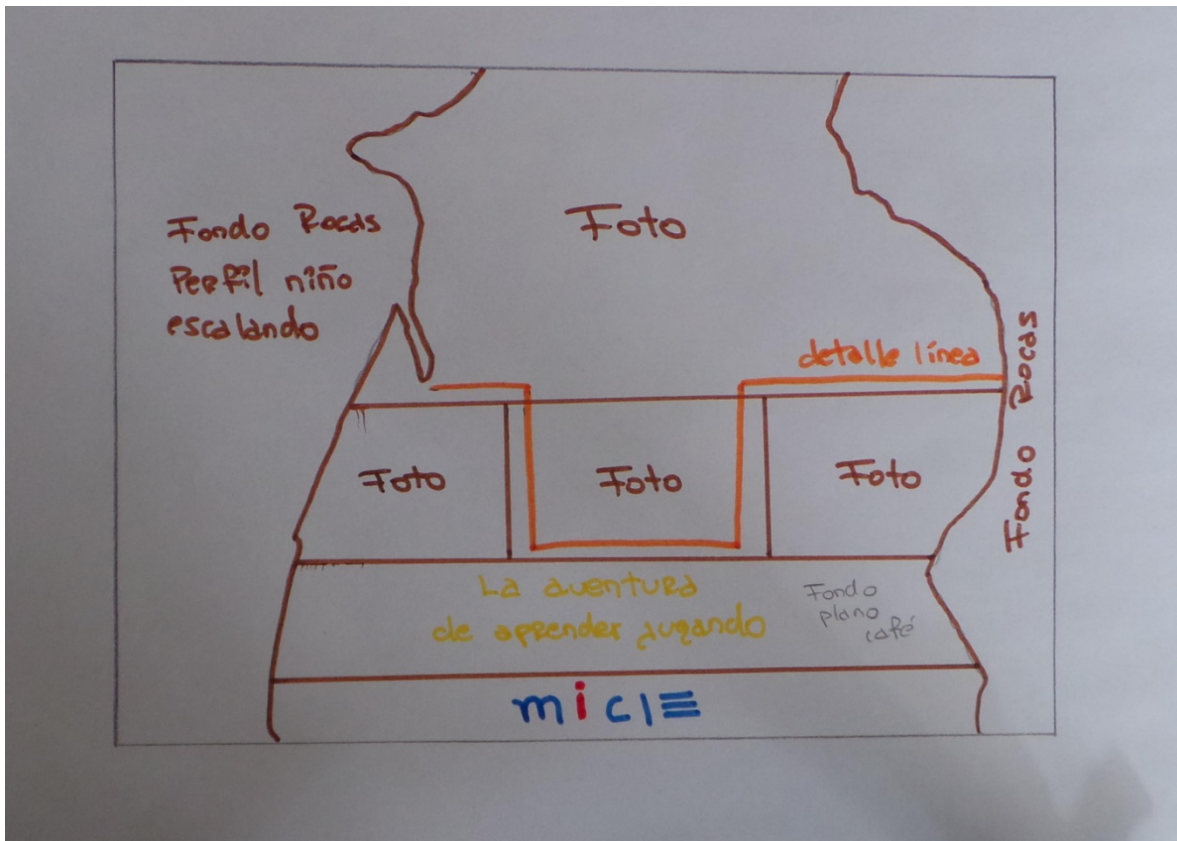 Fondo Rocas
Perfil niño
escalando
Foto
detalle línea
Fondo Rocas
Foto
Foto
Foto
La aventura
de aprender jugando
Fondo
plano
café
micle